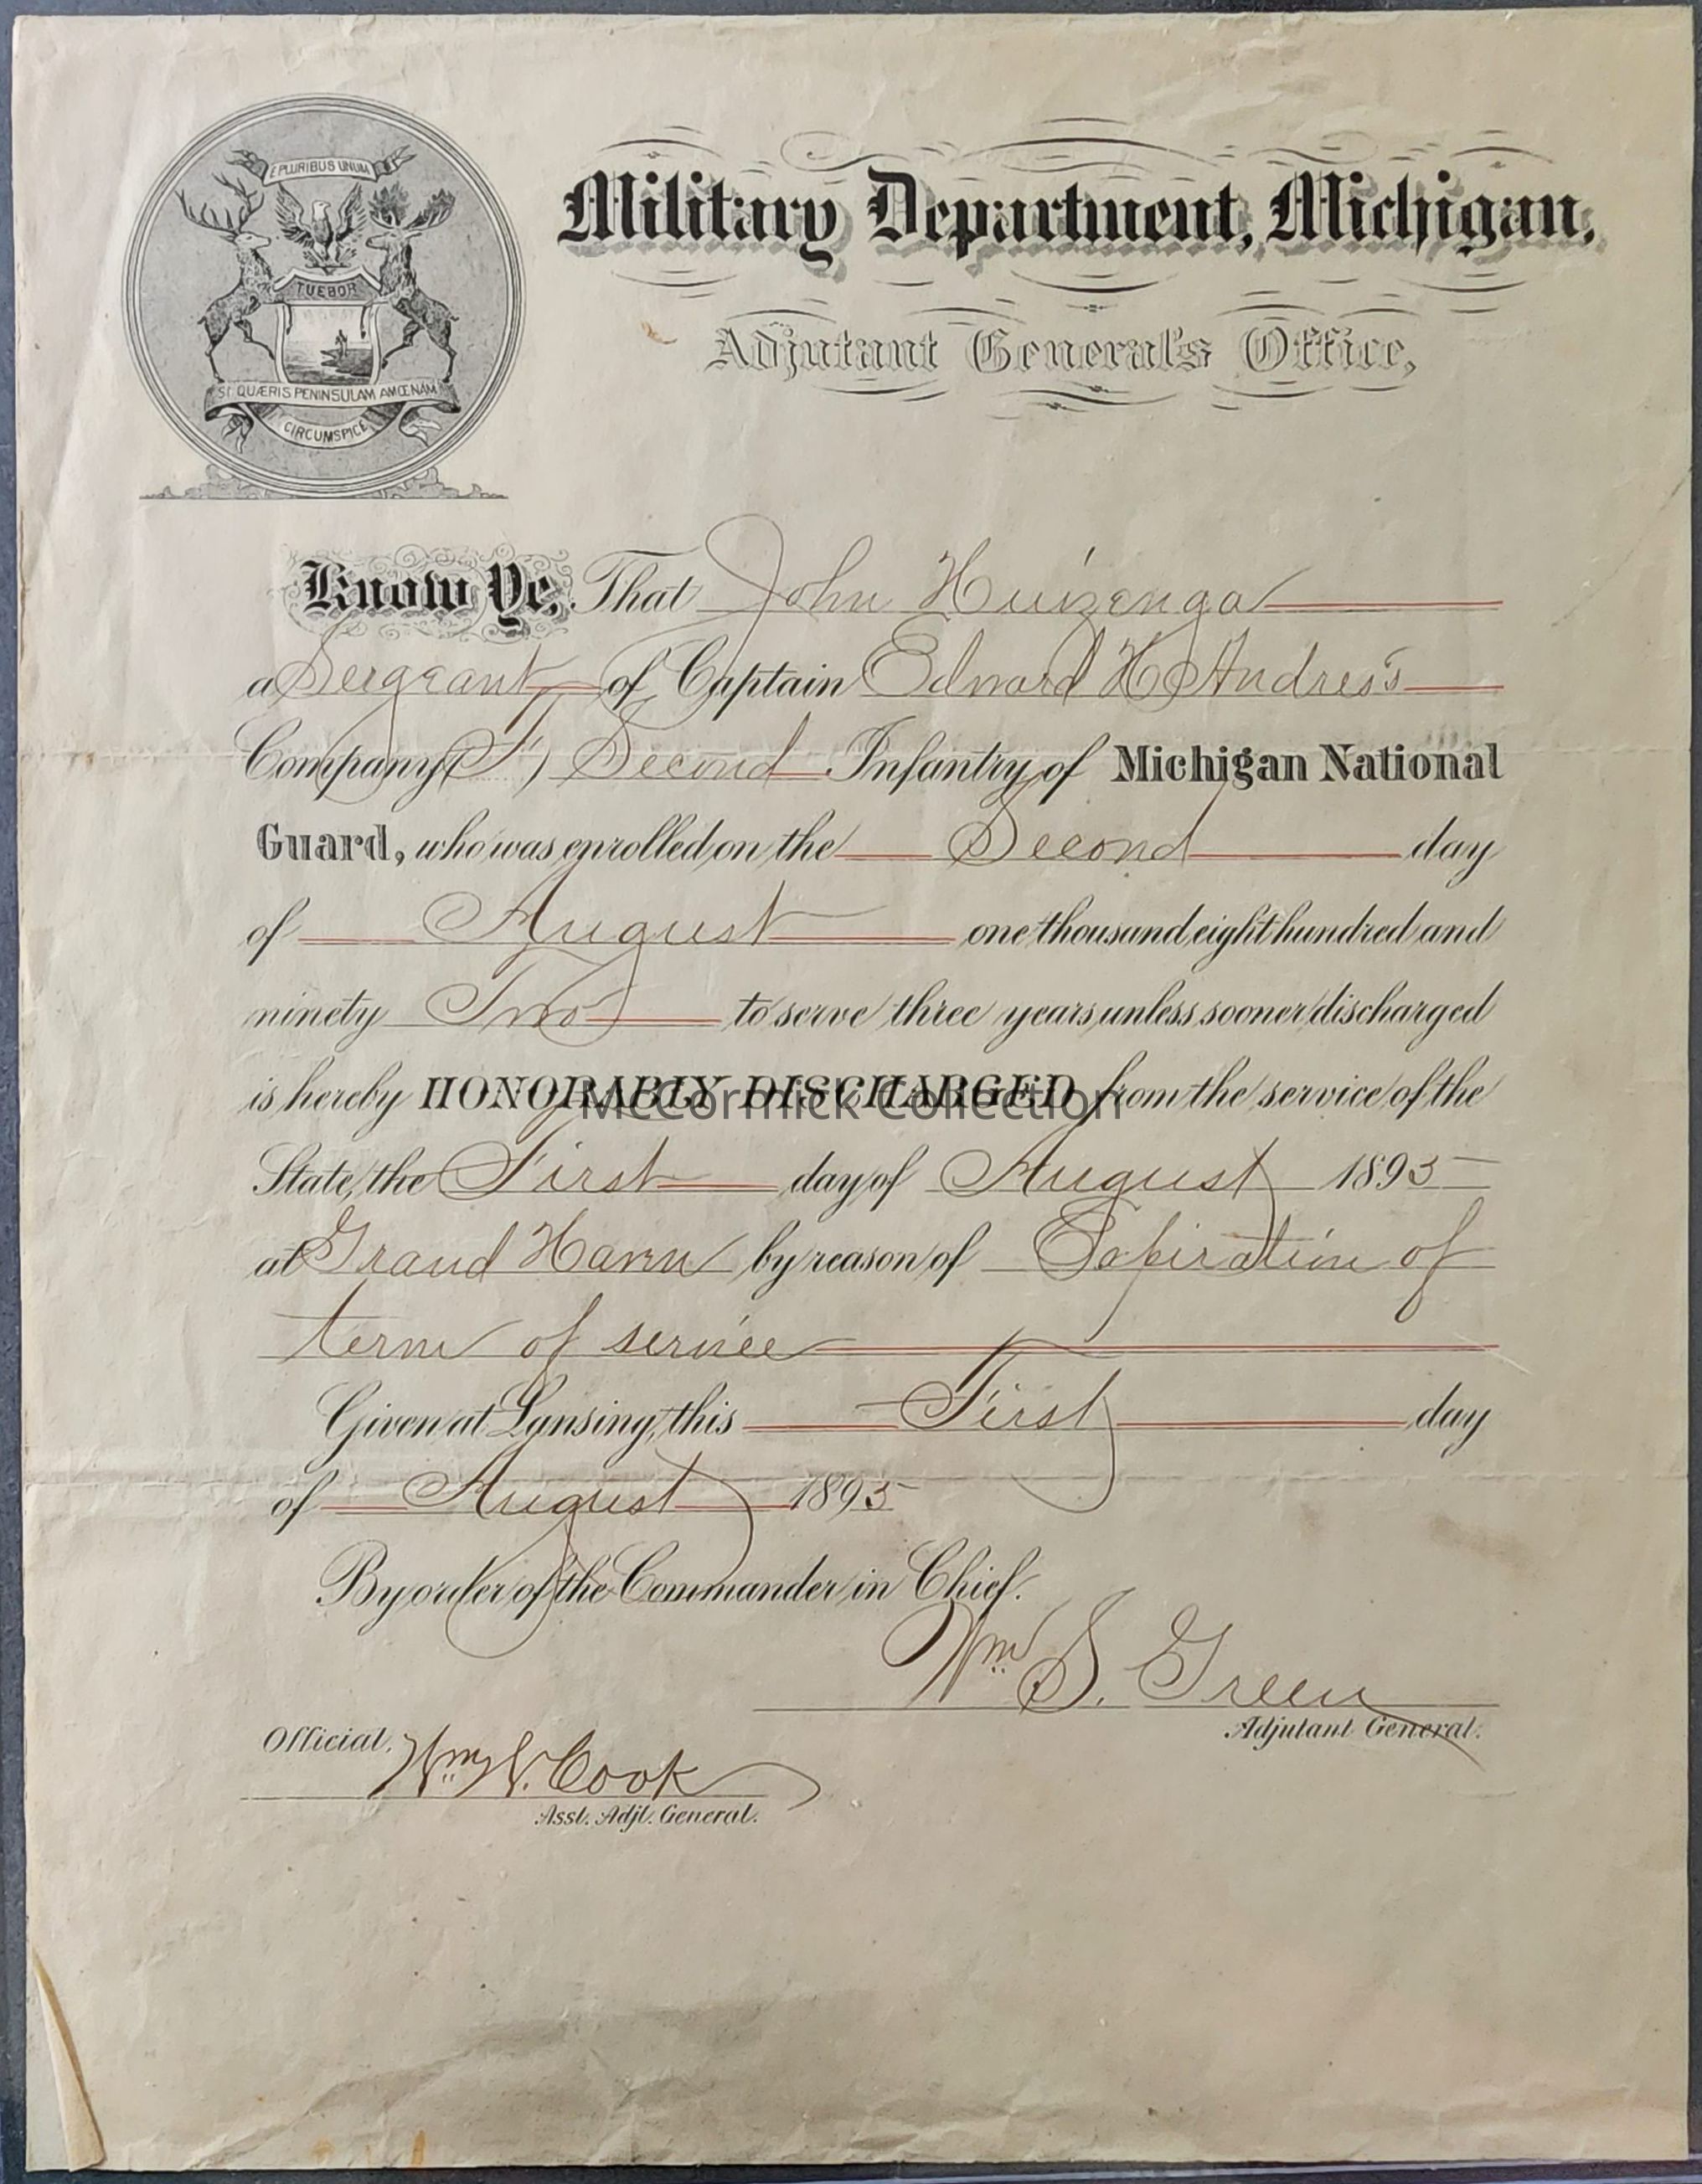 E PLURIBUS UNUM
TUEBOR
SI QUÆRIS PENINSULAM AMŒNAM
CIRCUMSPICE
Military Department, Michigan,
Adjutant General's Office,
Know Ye, That John Huizenga
a Sergeant of Captain Edward H Andres's
Company (F) Second Infantry of Michigan National
Guard, who was enrolled on the Second day
of August one thousand eight hundred and
ninety Two to serve three years, unless sooner discharged
is hereby HONORABLY DISCHARGED from the service of the
McCormick Collection
State, the First day of August 1895
at Grand Haven by reason of Expiration of
term of service
Given at Lansing, this First day
of August 1895
By order of the Commander in Chief.
Wm S. Green
Adjutant General.
Official.
Wm W. Cook
Asst. Adjt. General.